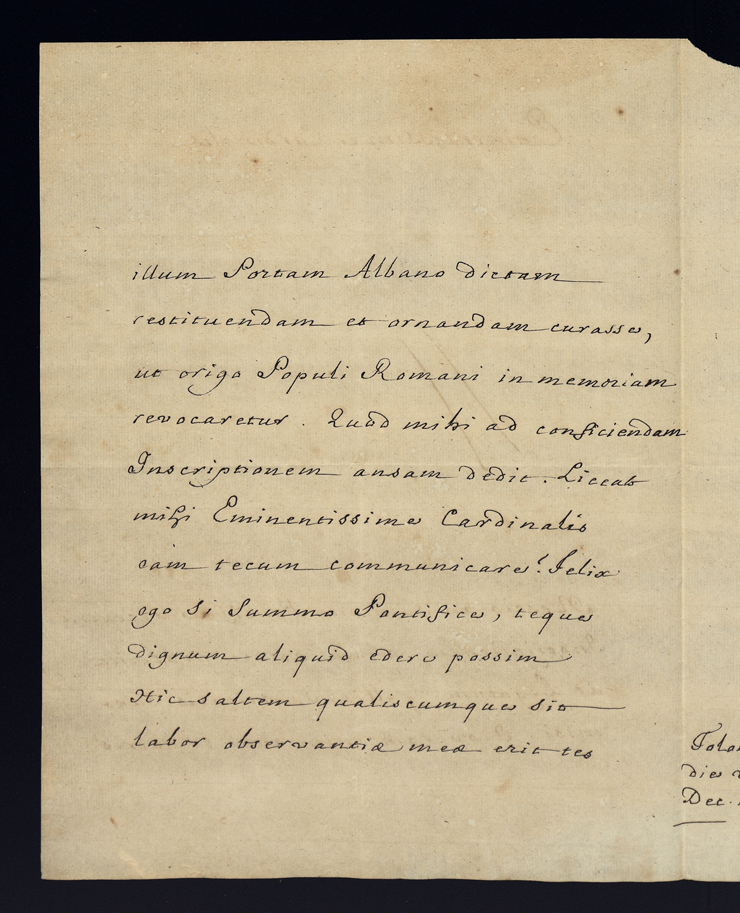 illum Portam Albano dictam
restituendam et ornandam curasse,
ut origo Populi Romani in memoriam
revocaretur. Quod mihi ad conficiendam
Inscriptionem ansam dedit. Liceat
mihi Eminentissime Cardinalis
eam tecum communicare! Felix
ego si Summo Pontifice, teque
dignum aliquid edere possim
Hic saltem qualiscumque sit
labor observantiæ meæ erit tes
die
Dec.